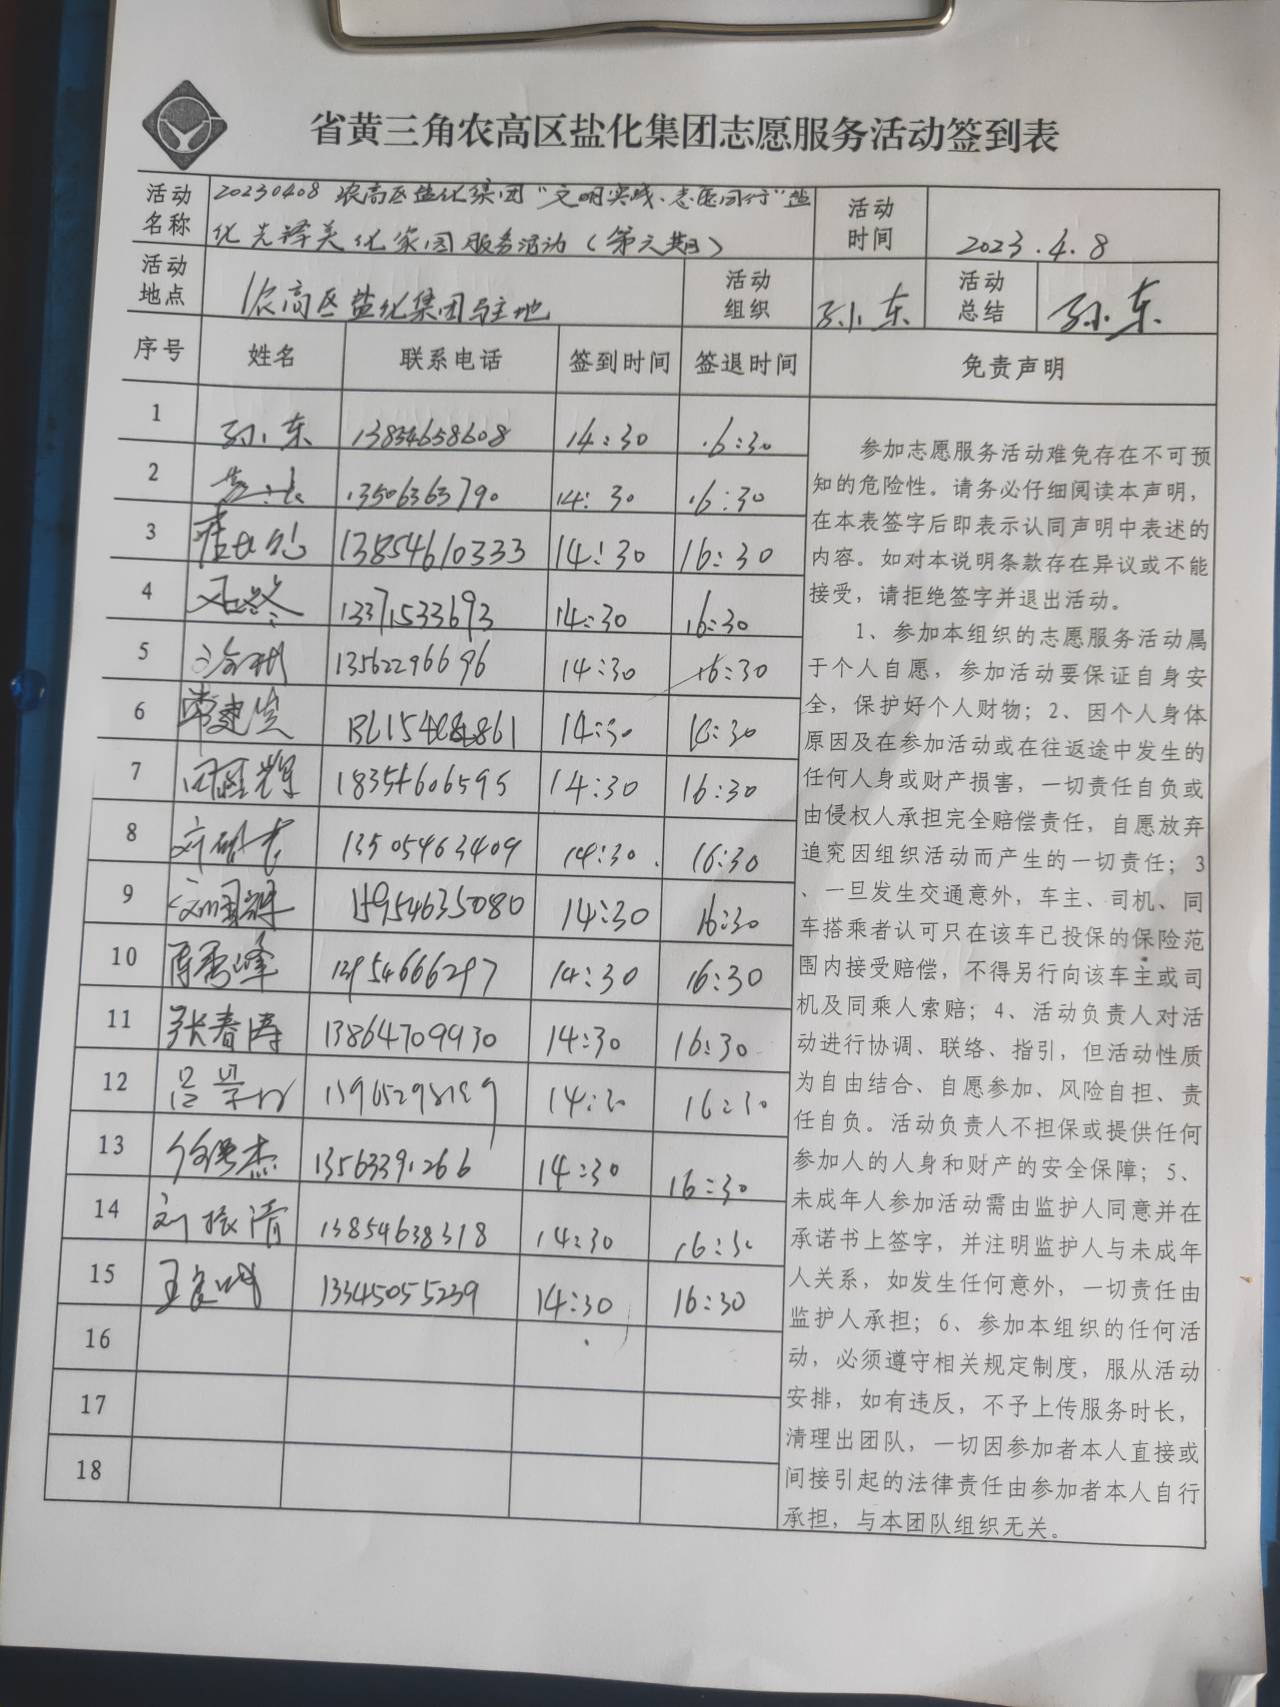 省黄三角农高区盐化集团志愿服务活动签到表
活动名称 20230408 农高区盐化集团“文明实践、志愿同行”盐
化先锋美化家园服务活动（第六期）
活动时间 2023.4.8
活动地点 农高区盐化集团驻地 活动组织 孙小东 活动总结 孙小东
序号 姓名 联系电话 签到时间 签退时间 免责声明
1 孙小东 13854658608 14:30 16:30
2 13506363790 14:30 16:30
3 13854610333 14:30 16:30
4 13371533693 14:30 16:30
5 13562296696 14:30 16:30
6 常建 14:30 16:30
7 18354606595 14:30 16:30
8 13505463409 14:30 16:30
9 15954635080 14:30 16:30
10 13954666297 14:30 16:30
11 张春涛 13864709930 14:30 16:30
12 吕 14:30 16:30
13 杰 14:30 16:30
14 刘振清 13854638318 14:30 16:30
15 王 13345055239 14:30 16:30
16
17
18
参加志愿服务活动难免存在不可预
知的危险性。请务必仔细阅读本声明，
在本表签字后即表示认同声明中表述的
内容。如对本说明条款存在异议或不能
接受，请拒绝签字并退出活动。
1、参加本组织的志愿服务活动属
于个人自愿，参加活动要保证自身安
全，保护好个人财物；2、因个人身体
原因及在参加活动或在往返途中发生的
任何人身或财产损害，一切责任自负或
由侵权人承担完全赔偿责任，自愿放弃
追究因组织活动而产生的一切责任；3
、一旦发生交通意外，车主、司机、同
车搭乘者认可只在该车已投保的保险范
围内接受赔偿，不得另行向该车主或司
机及同乘人索赔；4、活动负责人对活
动进行协调、联络、指引，但活动性质
为自由结合、自愿参加、风险自担、责
任自负。活动负责人不担保或提供任何
参加人的人身和财产的安全保障；5、
未成年人参加活动需由监护人同意并在
承诺书上签字，并注明监护人与未成年
人关系，如发生任何意外，一切责任由
监护人承担；6、参加本组织的任何活
动，必须遵守相关规定制度，服从活动
安排，如有违反，不予上传服务时长，
清理出团队，一切因参加者本人直接或
间接引起的法律责任由参加者本人自行
承担，与本团队组织无关。